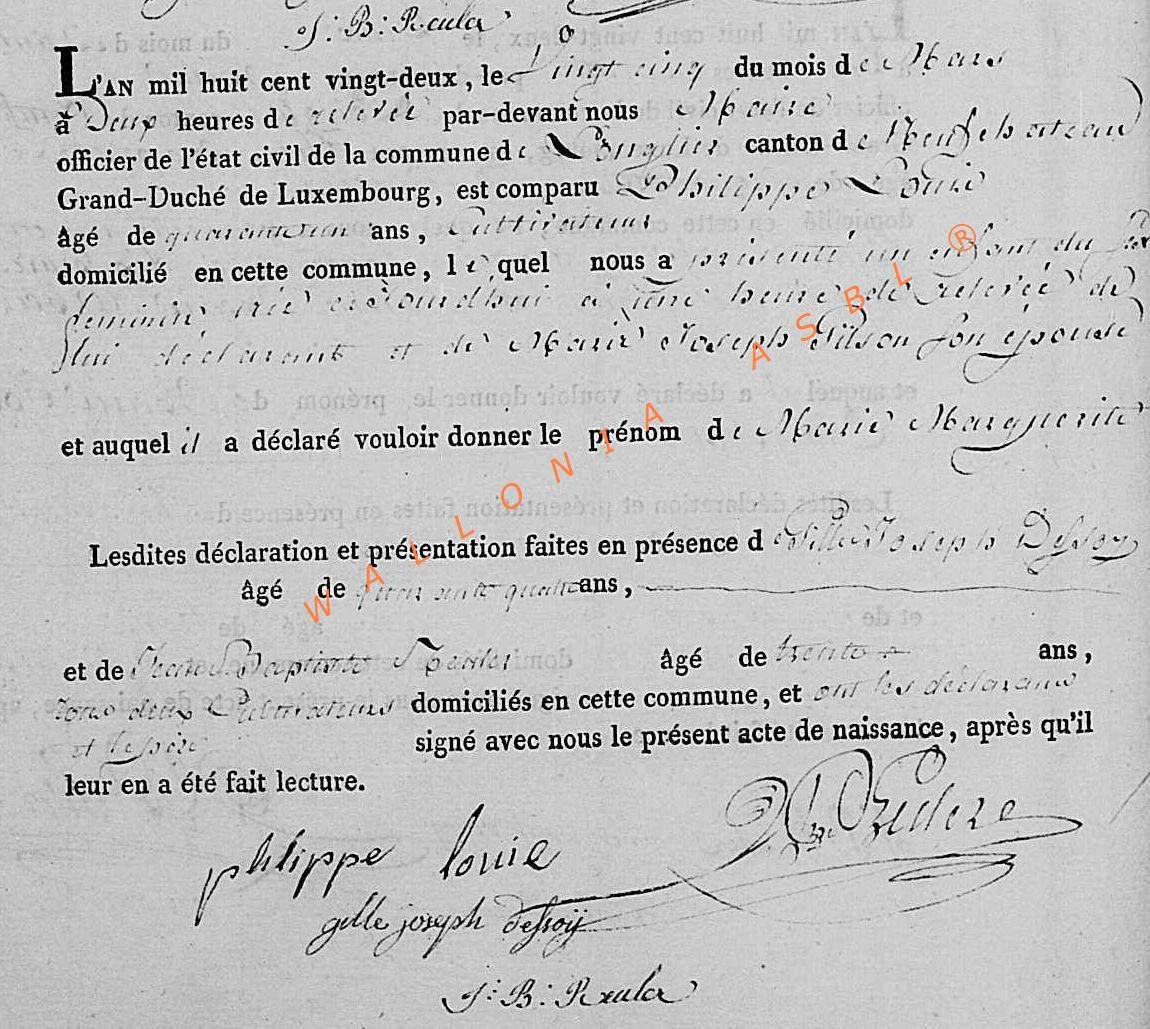 J: B: Reuler
L'AN mil huit cent vingt-deux, le Vingt cinq du mois de Mars
à Deux heures de relevée par-devant nous Maire
officier de l'état civil de la commune de Longlier canton de Neufchateau
Grand-Duché de Luxembourg, est comparu Philippe Louie
âgé de ans, Cultivateur
domicilié en cette commune, le quel nous a présenté un enfant du
feminin, née aujourdhui a une heure de relevée de
lui déclarant et de Marie Joseph Gilson son épouse
et auquel il a déclaré vouloir donner le prénom de Marie Marguerite
Lesdites déclaration et présentation faites en présence d Gille Joseph Dessoy
âgé de quarante quatre ans,
et de Jean Baptiste Reuler âgé de trente ans,
tous deux Cultivateurs domiciliés en cette commune, et ont les déclarans
et signé avec nous le présent acte de naissance, après qu'il
leur en a été fait lecture.
philippe louie
gille joseph dessoÿ
J: B: Reuler
WALLONIA ASBL ®